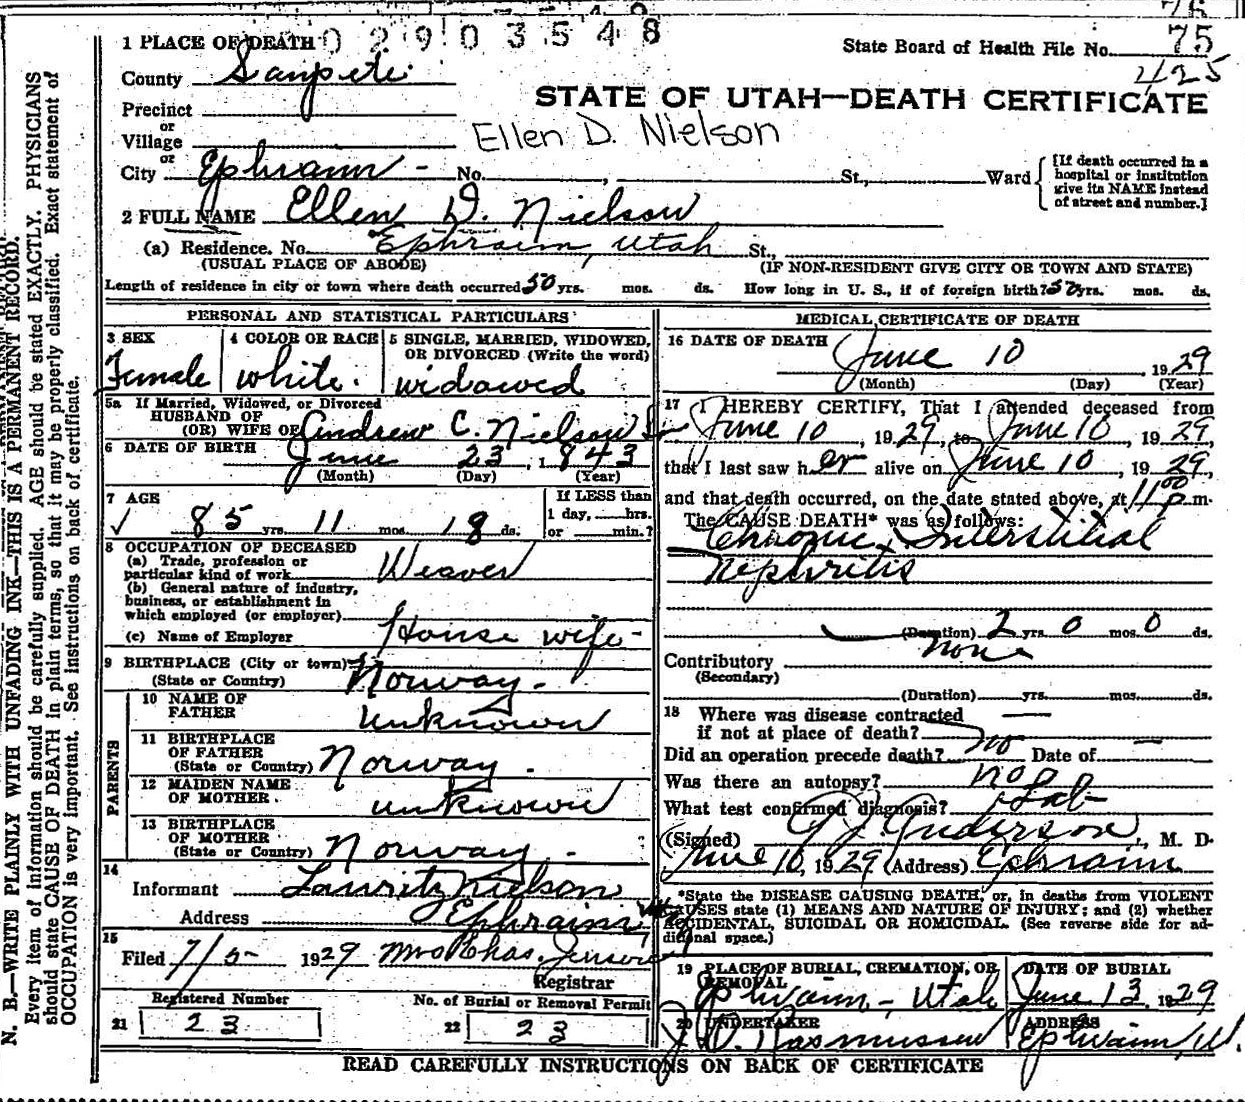 0 2 9 0 3 5 4 8
State Board of Health File No. 75
425
1 PLACE OF DEATH
County Sanpete
STATE OF UTAH—DEATH CERTIFICATE
Precinct
or
Village
Ellen D. Nielson
or
City Ephraim - No. , St., Ward
[If death occurred in a
hospital or institution
give its NAME instead
of street and number.]
2 FULL NAME Ellen D. Nielson
(a) Residence. No. Ephraim, Utah St.,
(USUAL PLACE OF ABODE) (IF NON-RESIDENT GIVE CITY OR TOWN AND STATE)
Length of residence in city or town where death occurred 50 yrs. mos. ds. How long in U. S., if of foreign birth? yrs. mos. ds.
PERSONAL AND STATISTICAL PARTICULARS
3 SEX 4 COLOR OR RACE 5 SINGLE, MARRIED, WIDOWED,
OR DIVORCED (Write the word)
Female white. widowed
5a If Married, Widowed, or Divorced
HUSBAND OF
(OR) WIFE OF Andrew C. Nielson Sr
6 DATE OF BIRTH June 23, 1843
(Month) (Day) (Year)
7 AGE If LESS than
1 day, hrs.
✓ 85 yrs. 11 mos. 18 ds. or min.?
8 OCCUPATION OF DECEASED
(a) Trade, profession or
particular kind of work Weaver
(b) General nature of industry,
business, or establishment in
which employed (or employer)
(c) Name of Employer House wife-
9 BIRTHPLACE (City or town)
(State or Country) Norway-
PARENTS
10 NAME OF
FATHER unknown
11 BIRTHPLACE
OF FATHER
(State or Country) Norway.
12 MAIDEN NAME
OF MOTHER unknown
13 BIRTHPLACE
OF MOTHER
(State or Country) Norway-
14
Informant Lauritz Nielson
Address Ephraim
15
Filed 7/5- 1929 Mrs Chas. Jensen
Registrar
Registered Number No. of Burial or Removal Permit
21 23 22 23
MEDICAL CERTIFICATE OF DEATH
16 DATE OF DEATH
June 10 1929
(Month) (Day) (Year)
17 I HEREBY CERTIFY, That I attended deceased from
June 10, 1929, to June 10, 1929,
that I last saw her alive on June 10, 1929,
and that death occurred, on the date stated above, at 11 00 p.m.
The CAUSE DEATH* was as follows:
Chronic Interstitial
Nephritis
(Duration) 2 yrs. 0 mos. 0 ds.
Contributory none
(Secondary)
(Duration) yrs. mos. ds.
18 Where was disease contracted
if not at place of death? —
Did an operation precede death? no Date of —
Was there an autopsy? no
What test confirmed diagnosis? Lab-
(Signed) Anderson, M. D.
June 10, 1929 (Address) Ephraim
*State the DISEASE CAUSING DEATH, or, in deaths from VIOLENT
CAUSES state (1) MEANS AND NATURE OF INJURY; and (2) whether
ACCIDENTAL, SUICIDAL OR HOMICIDAL. (See reverse side for ad-
ditional space.)
19 PLACE OF BURIAL, CREMATION, OR
REMOVAL DATE OF BURIAL
Ephraim - Utah June 13, 1929
20 UNDERTAKER ADDRESS
Rasmussen Ephraim, U.
READ CAREFULLY INSTRUCTIONS ON BACK OF CERTIFICATE
N. B.—WRITE PLAINLY WITH UNFADING INK—THIS IS A PERMANENT RECORD.
Every item of information should be carefully supplied. AGE should be stated EXACTLY. PHYSICIANS
should state CAUSE OF DEATH in plain terms, so that it may be properly classified. Exact statement of
OCCUPATION is very important. See instructions on back of certificate.